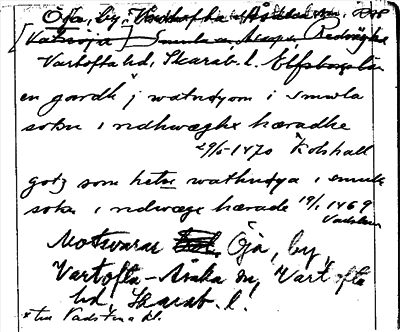 Öja, by, Vartofta-Åsaka sn.
[Vatnöja] Smula sn, Ås hd, Redvägs
Vartofta hd, Skarab. l. Elfsborgs län
en gardh j watnøyom i smwla
sokn i rædhwæghx hæradhe
29/5 1470 Kolshall
godz som heter wathnøya i smule
sokn i rædwægx hærade 19/1 1469
Vadstena
Motsvarar Öja, by,
Vartofta-Åsaka sn, Vartofta
hd, Skarab. l.
x till Vadstena kl.